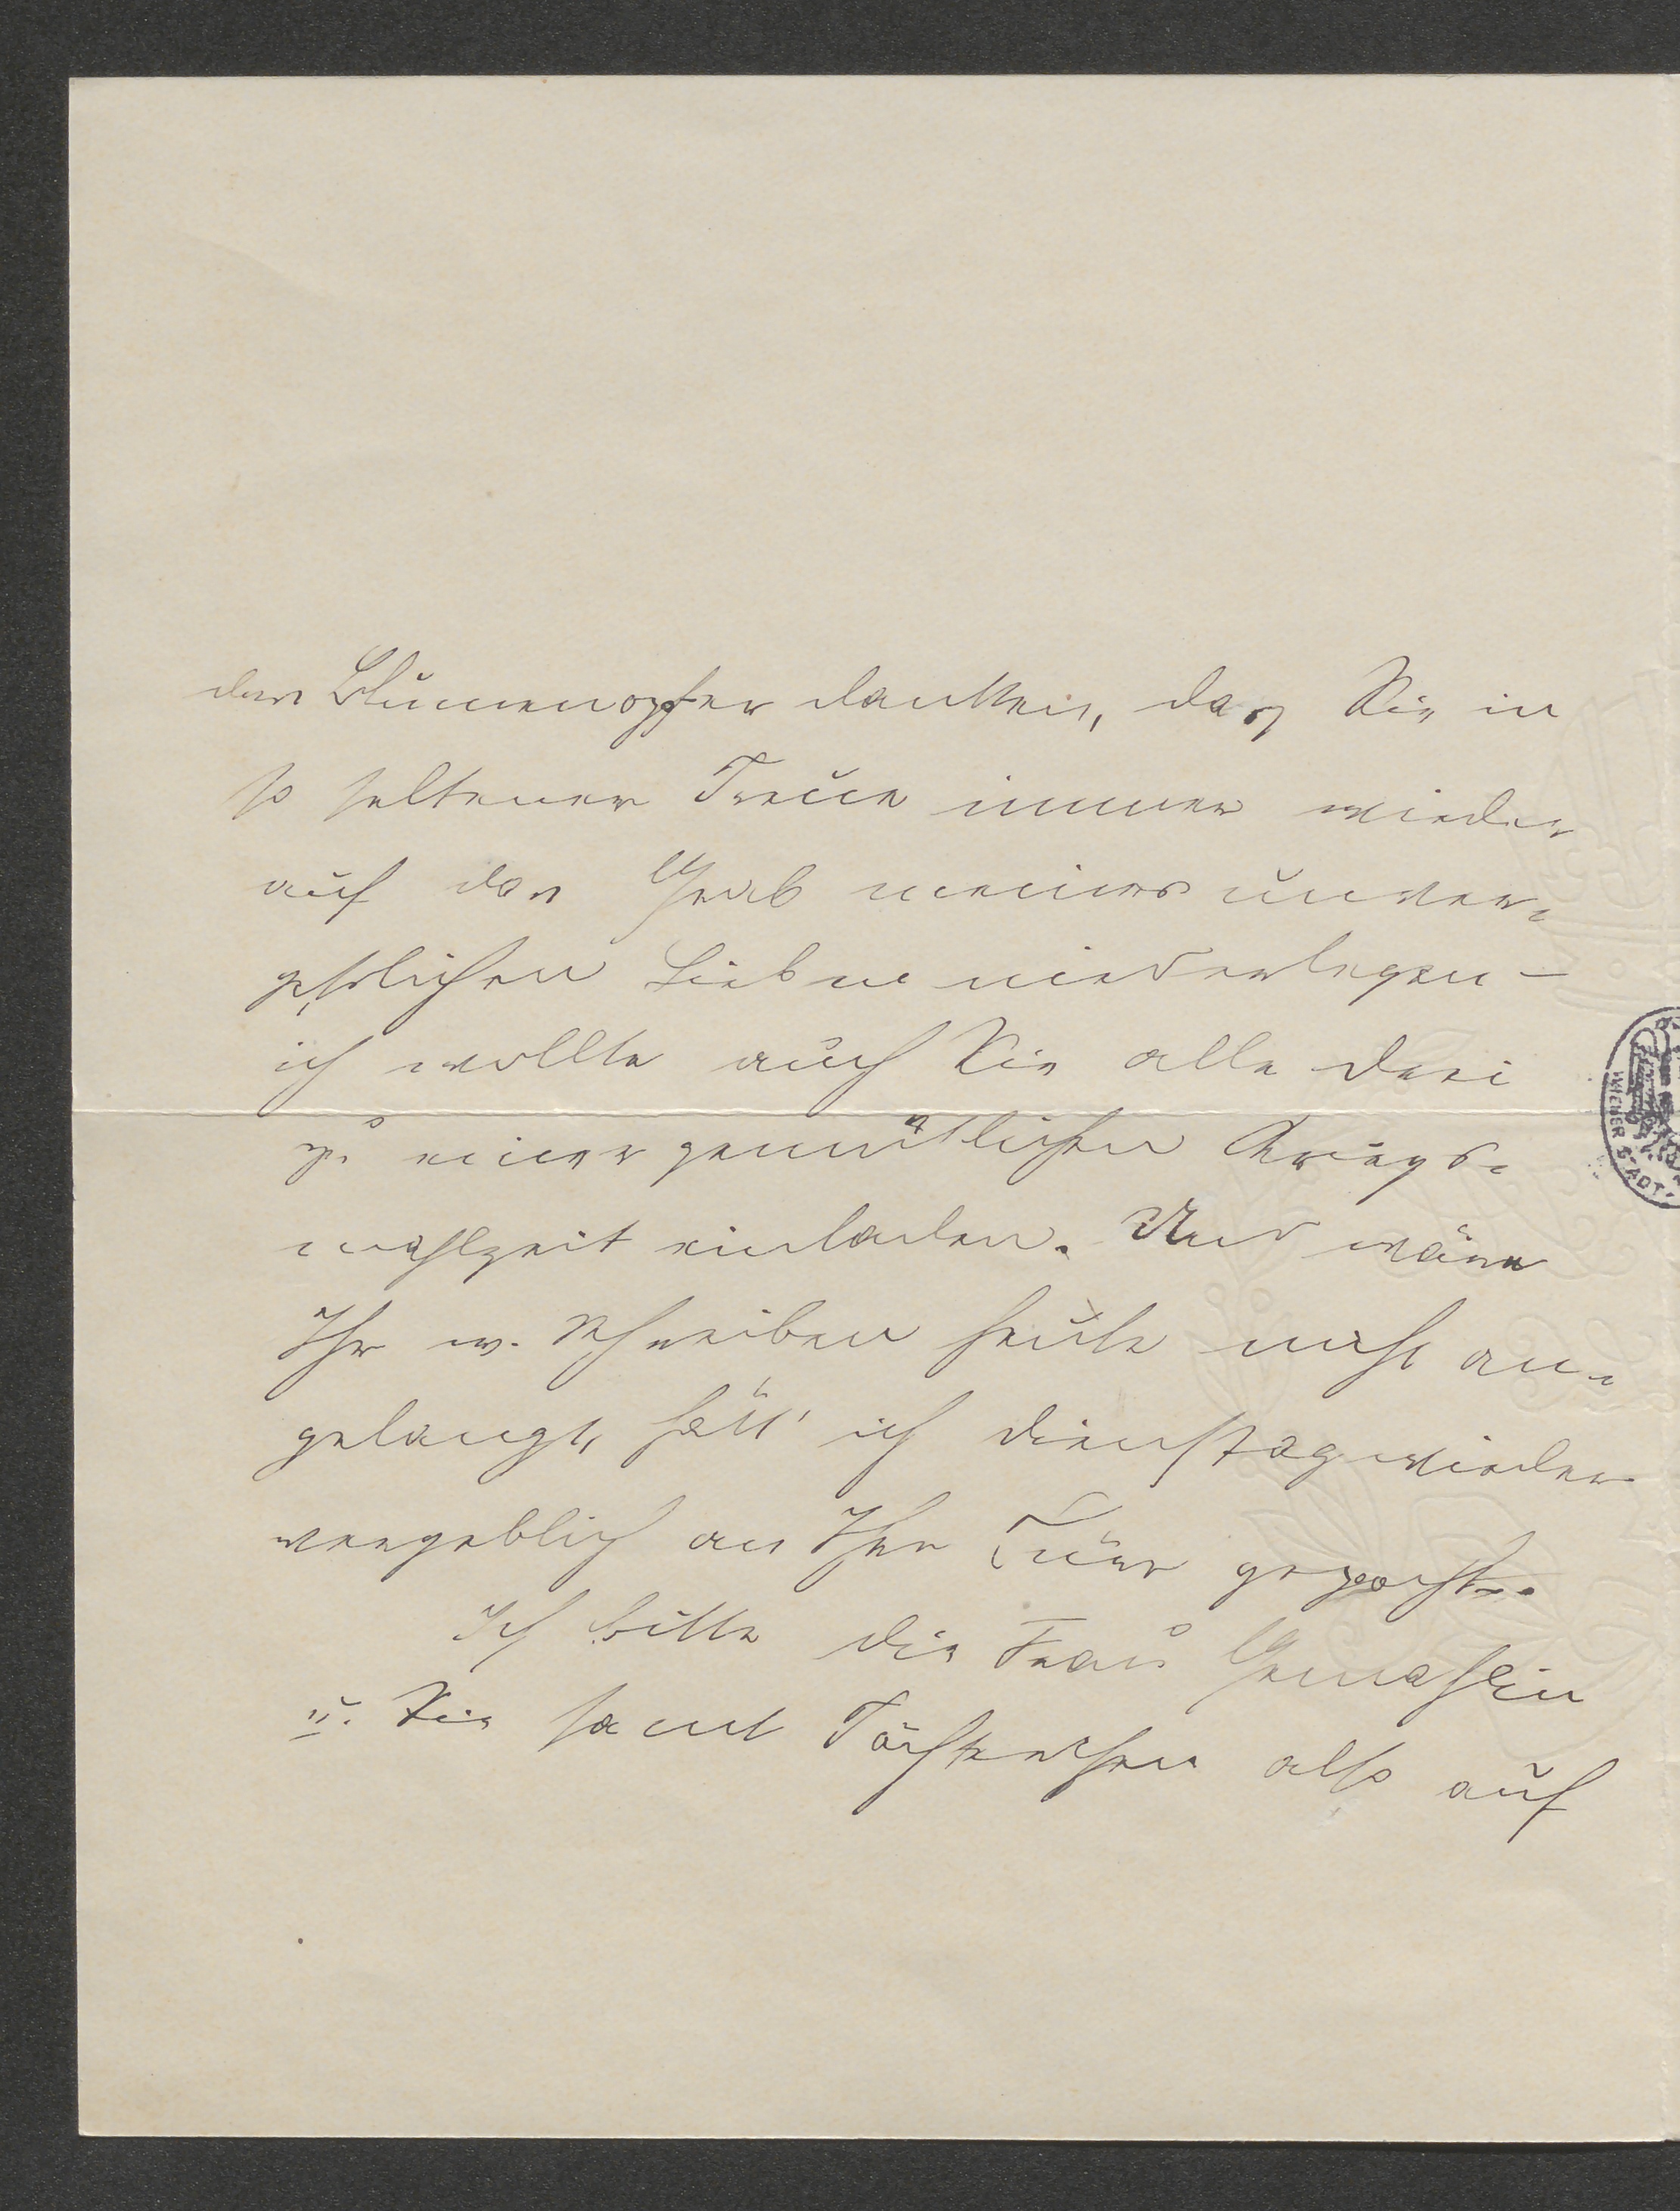 das Blumenopfer danken, das Sie in
so seltener Treue immer wieder
auf das Grab meiner unver-
geßlichen Lieben niederlegen –
ich wollte auch Sie alle drei
zu einer gemütlichen Kriegs-
mahlzeit einladen. Und wäre
Ihr w. Schreiben heute nicht an-
gelangt, hätt' ich Dienstag wieder
vergeblich an Ihre Türe gepocht.
Ich bitte die Frau Gemahlin
u. Sie samt Töchterchen also auf
WIENER STADT-